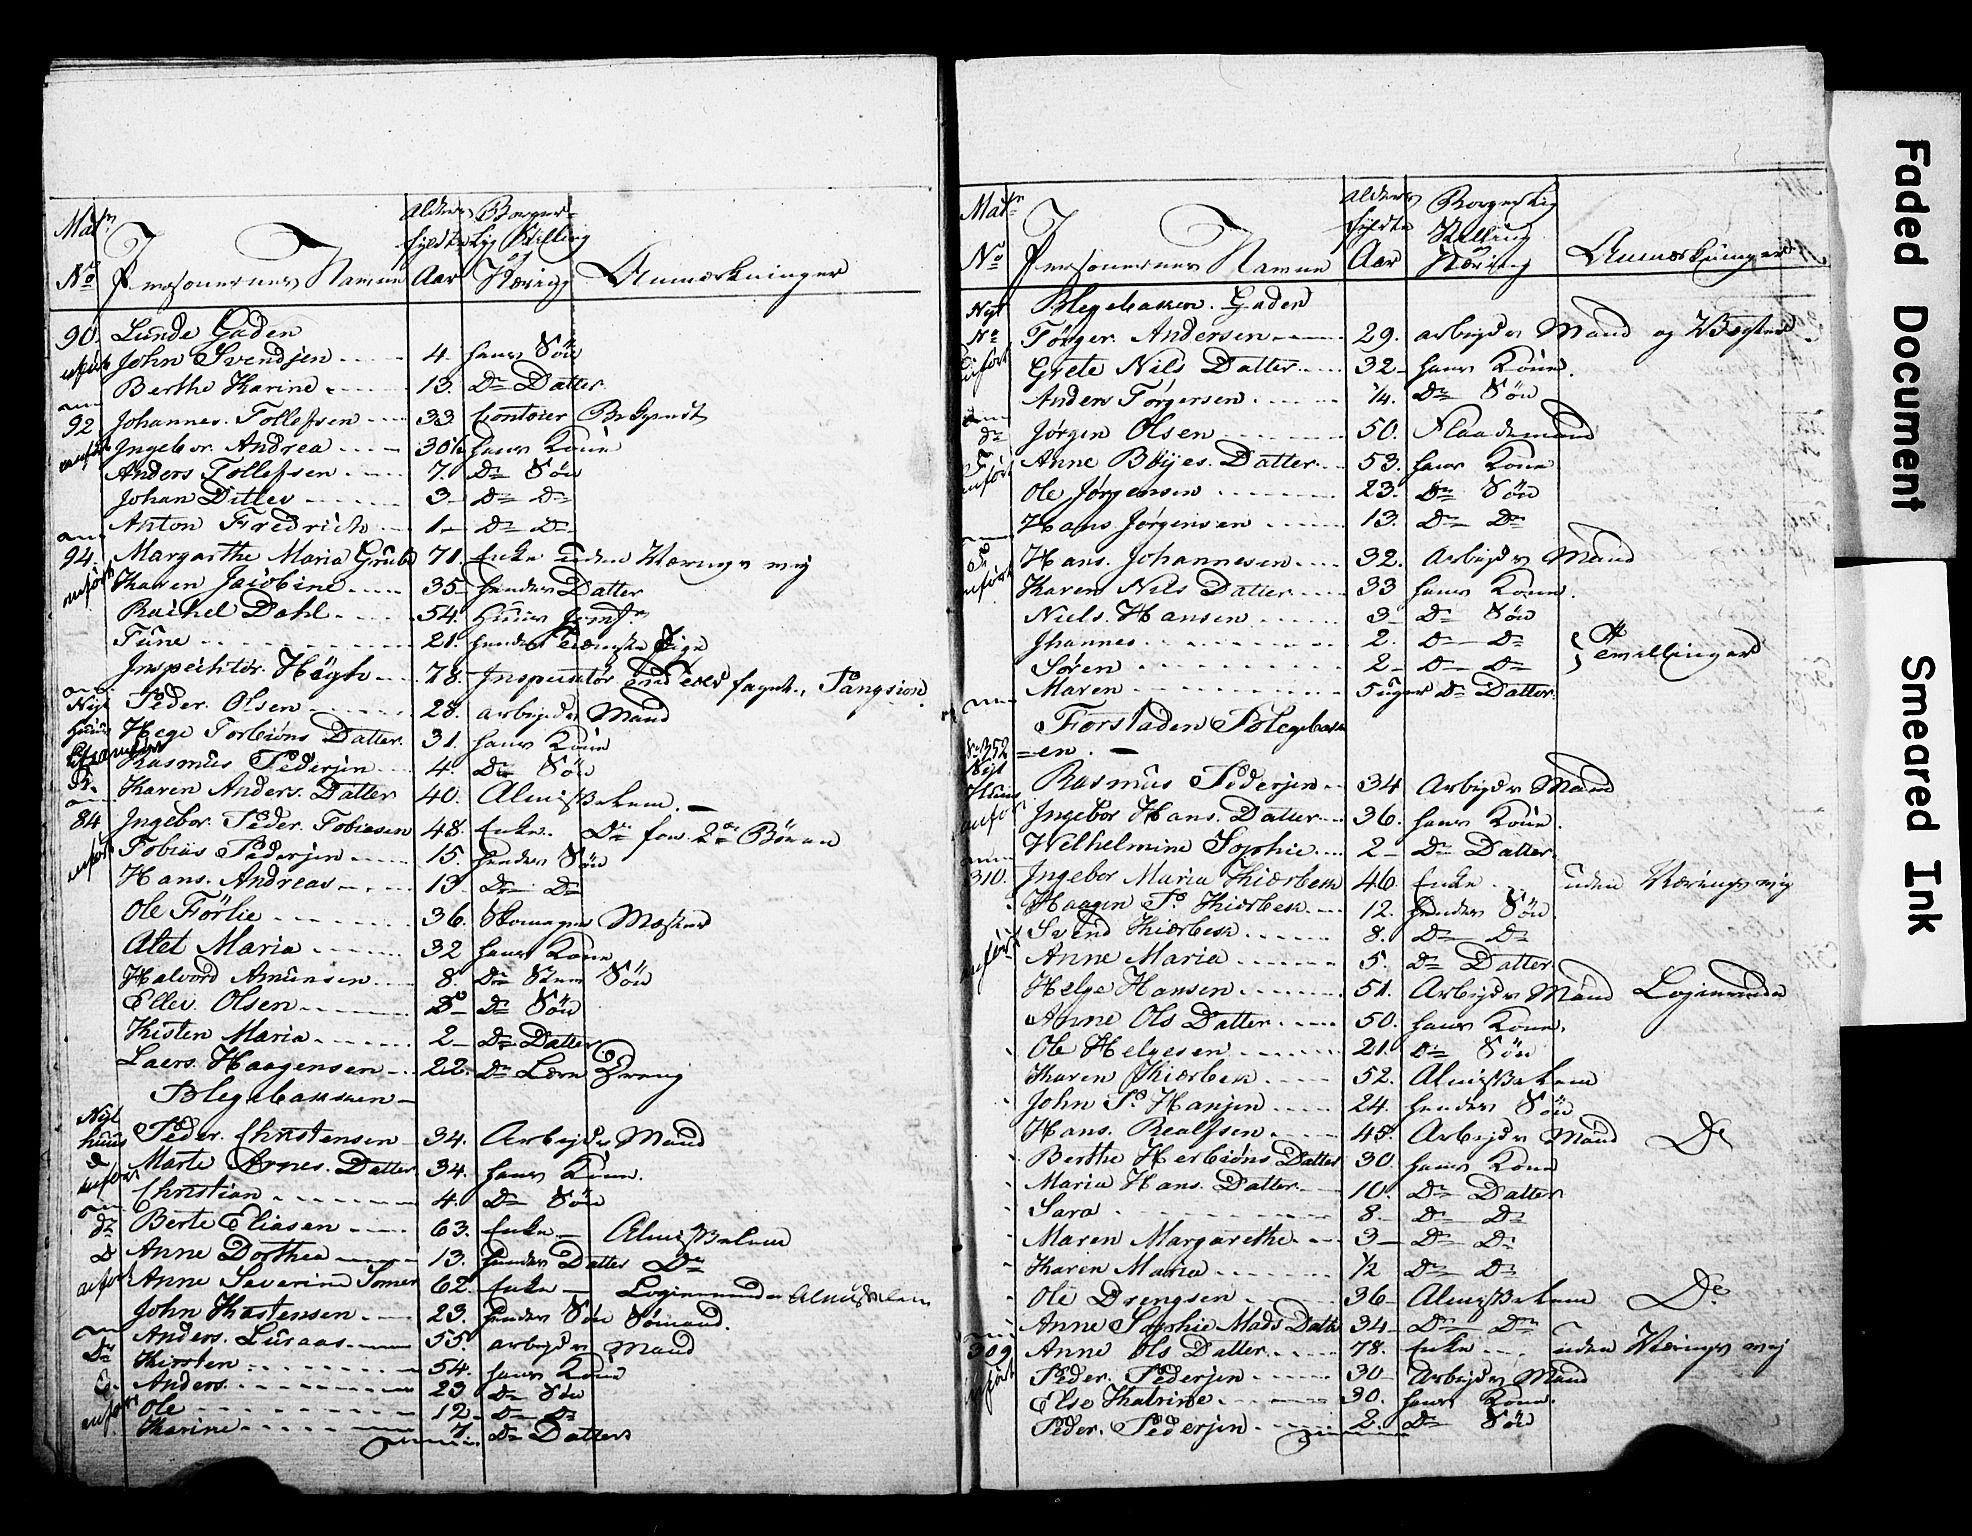 Matr No Personernes Namne Alders fyldte Aar Borgerlig Stilling og Næring Anmærkninger
90. Lunde Gaden
John Svendsen 4. hans Sön
Berthe Karine 13. Do Datter
92 Johannes Tollefsen 33 Contoier Betyendt
Ingebor Andrea 30 hans Kone
Anders Tollefsen 7. Do Sön
Johan Ditlev 3 Do Do
Anton Fredrich 1 Do Do
94. Margarthe Maria Grube 71. Enke uden Nærings vej
anfört Karen Jacobine 35 hendes Datter
Rachel Dahl 54. Huus Jomfr
Tüne 21. hendes Tieneste Pige
Inspechtör Högh 78. Inspecktör Pangsion
Nyt Peder Olsen 28. arbeyder Mand
Huus Hege Torbiöns Datter 31. hans Kone
Rasmüs Pedersen 4. Do Sön
Karen Anders Datter 40. Almisselem
84 Ingebor Peder Tobiesen 48. Enke. Do for 2de Börnen
anfört Tobias Pedersen 15. hendes Sön
Hans Andreas 13 Do Do
Ole Förlie 36. Skomager Mester
Alet Maria 32 hans Kone
Halvord Amundsen 8. Do Stem Sön
Ellev Olsen Do Sön
Kisten Maria 2 Do Datter
Laers Haagensen 22. Do Lære Dreng
Blegebakken
Nyt huus Peder Christensen 34. Arbeyder Mand
anfört Marte Arnes Datter 34. hans Kone.
Christian 4. Do Sön
do Berte Eliasen 63. Enke Almisselem
D Anne Dorthea 13. hendes Datter Do
anfört Anne Severine Somer 62. Enke Logierende Almisselem
John Kastensen 23. hendes Sön Sömand.
Do Anders Luraas 55. arbeyder Mand
Kirsten 54. hans Kone
Anders 23 Do Sön
anfört Ole 12 Do Do
Karine 7 Do Datter
Matr No Personernes Namne Alders fyldte Aar Borgerlig Stilling og Næring Anmærkninger
Nyt Blegebakken Gaden
No Törger Andersen 29. arbeyder Mand og Vægter
anfört Grete Nils Datter 32 hans Kone.
Anders Törgersen 1/4. Do Sön
do Jörgen Olsen 50. Flaademand
Anne Böyes Datter 53. hans Kone
anfört Ole Jörgensen 23. Do Sön
Hans Jörgensen 13. Do Do
Hans Johannesen 32. Arbeyder Mand
anfört Karen Nils Datter 33 hans Kone.
Niels Hansen 3 Do Sön
Jhannes 2. D Do } Tvillinger
Sören 2 D Do
Maren 5 uger Do Datter
Forstaden Blegebakk
=en. No 352
Nyt Huus Rasmüs Pedersen 34 Arbeyder Mand
anfört Ingebor Hans Datter 36. hans Kone.
Welhelmine Sophie 2 Do Datter
310. Ingebor Maria Kierbek 46. Enke uden Nærings vej
Haagen Ps Kierbek 12. hendes Sön
Svend Kierbek 8. Do Do
anfört Anne Maria 5. Do Datter
Helge Hansen 51. Arbeyder Mand Logierende
Anne Ols Datter 50. hans Kone.
Ole Helgesen 21. Do Sön
Karen Kierbek 52. Almisselem
John Ps Hansen 24. hendes Sön
Hans Realfsen 45. Arbeyder Mand Do
Berthe Herbiöns Datter 30. hans Kone
Maria Hans Datter 10. Do Datter
Sara 8 Do Do
Maren Margarethe 3 Do Do
Karen Maria 1/2 Do Do
Ole Drengsen 36 Almisselem Do
Anne Sophie Mads Datter 34 Do Do
309 Anne Ols Datter 78. Enke uden Nærings vej
anfört Peder Pedersen 30 Arbeyder Mand
Else Katrine 30. hans Kone.
Peder Pedersen 2. Do Sön
Faded Document
Smeared Ink